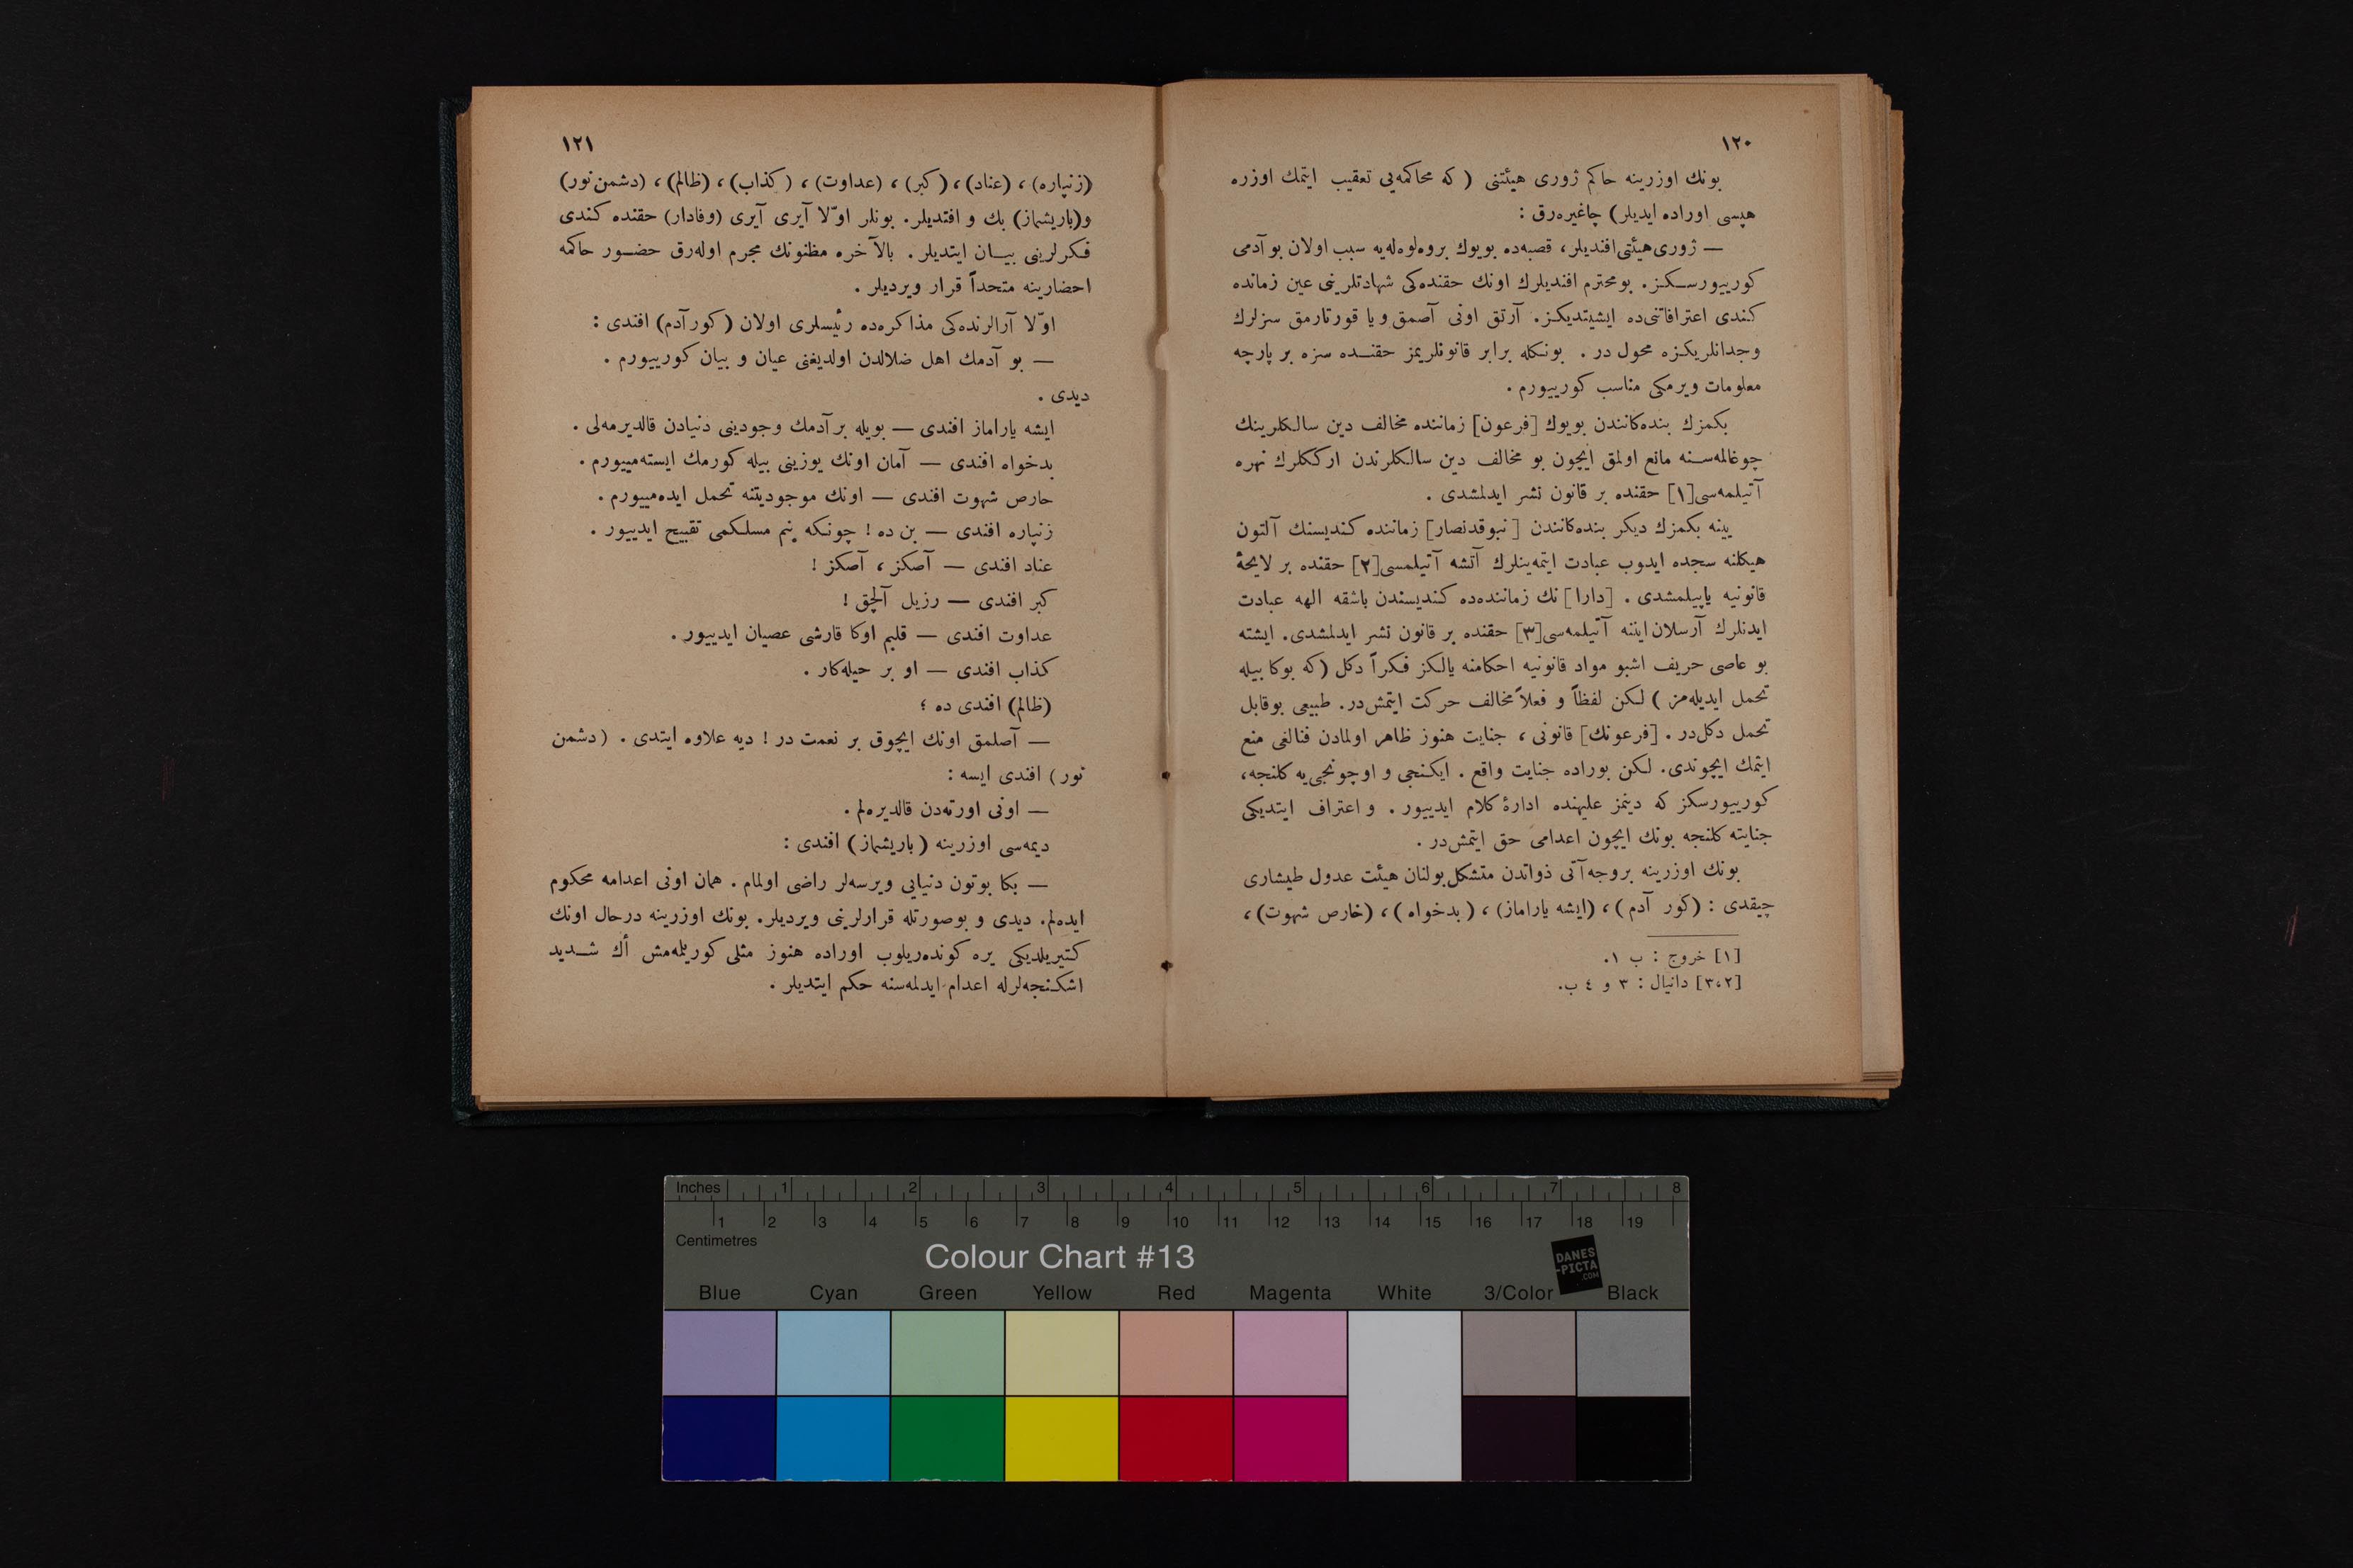 ١٢٠
بونك اوزرينه حاكم ژورى هيئتنى ( كه محاكمه‌يى تعقيب ايتمك اوزره
هپسى اوراده ايديلر) چاغيره‌رق :
— ژورى هيئتى افنديلر، قصبه‌ده بويوك بروه‌لوه‌له‌يه سبب اولان بو آدمى
كورييورسكز. بو محترم افنديلرك اونك حقنده‌كى شهادتلرينى عين زمانده
كندى اعترافاتنى‌ده ايشيتديكز. آرتق اونى آصمق و يا قورتارمق سزلرك
وجدانلريكزه محول در . بونكله برابر قانونلريمز حقنده سزه بر پارچه
معلومات ويرمكى مناسب كورييورم .
بكمزك بنده‌كانندن بويوك [فرعون] زماننده مخالف دين سالكلرينك
چوغالمه‌سنه مانع اولمق ايچون بو مخالف دين سالكلرندن ارككلرك نهره
آتيلمه‌سى[١] حقنده بر قانون نشر ايدلمشدى .
يينه بكمزك ديكر بنده‌كانندن [نبوقدنصار] زماننده كنديسنك آلتون
هيكلنه سجده ايدوب عبادت ايتمه‌ينلرك آتشه آتيلمسى[٢] حقنده بر لايحهٔ
قانونيه ياپيلمشدى . [دارا] نك زماننده‌ده كنديسندن باشقه الهه عبادت
ايدنلرك آرسلان ايننه آتيلمه‌سى[٣] حقنده بر قانون نشر ايدلمشدى. ايشته
بو عاصى حريف اشبو مواد قانونيه احكامنه يالكز فكراً دكل (كه بوكا بيله
تحمل ايديله‌مز ) لكن لفظاً و فعلاً مخالف حركت ايتمش‌در. طبيعى بو قابل
تحمل دكل‌در . [فرعونك] قانونى ، جنايت هنوز ظاهر اولمادن فنالغى منع
ايتمك ايچوندى. لكن بوراده جنايت واقع . ايكنجى و اوچونجى‌يه كلنجه،
كورييورسكز كه دينمز عليهنده ادارهٔ كلام ايدييور . و اعتراف ايتديكى
جنايته كلنجه بونك ايچون اعدامى حق ايتمش‌در .
بونك اوزرينه بروجه آتى ذواتدن متشكل بولنان هيئت عدول طيشارى
چيقدى : (كور آدم) ، (ايشه ياراماز) ، (بدخواه) ، (خارص شهوت) ،
[١] خروج : ب ١.
[٣،٢] دانيال : ٣ و ٤ ب.
١٢١
(زنپاره) ، (عناد) ، (كبر) ، (عداوت) ، (كذاب) ، (ظالم) ، (دشمن نور)
و(باريشماز) بك و افنديلر. بونلر اوّلا آيرى آيرى (وفادار) حقنده كندى
فكرلرينى بيان ايتديلر . بالآخره مظنونك مجرم اوله‌رق حضور حاكمه
احضارينه متحداً قرار ويرديلر .
اوّلا آرالرنده‌كى مذاكره‌ده رئيسلرى اولان (كور آدم) افندى :
— بو آدمك اهل ضلالدن اولديغنى عيان و بيان كورييورم .
ديدى .
ايشه ياراماز افندى — بويله بر آدمك وجودينى دنيادن قالديرمه‌لى .
بدخواه افندى — آمان اونك يوزينى بيله كورمك ايسته‌مييورم .
حارص شهوت افندى — اونك موجوديتنه تحمل ايده‌مييورم .
زنپاره افندى — بن ده ! چونكه بنم مسلكمى تقبيح ايدييور .
عناد افندى — آصكز ، آصكز !
كبر افندى — رزيل آلچق !
عداوت افندى — قلبم اوكا قارشى عصيان ايدييور .
كذاب افندى — او بر حيله‌كار .
(ظالم) افندى ده ؛
— آصلمق اونك ايچوق بر نعمت در ! ديه علاوه ايتدى . (دشمن
نور) افندى ايسه :
— اونى اورته‌دن قالديره‌لم .
ديمه‌سى اوزرينه (باريشماز) افندى :
— بكا بوتون دنيايى ويرسه‌لر راضى اولمام . همان اونى اعدامه محكوم
ايده‌لم. ديدى و بوصورتله قرارلرينى ويرديلر. بونك اوزرينه درحال اونك
كتيريلديكى يره كونده‌ريلوب اوراده هنوز مثلى كوريلمه‌مش أك شديد
اشكنجه‌لرله اعدام ايدلمه‌سنه حكم ايتديلر .
Inches 1 2 3 4 5 6 7 8
1 2 3 4 5 6 7 8 9 10 11 12 13 14 15 16 17 18 19
Centimetres
Colour Chart #13
DANES
-PICTA
.COM
Blue Cyan Green Yellow Red Magenta White 3/Color Black